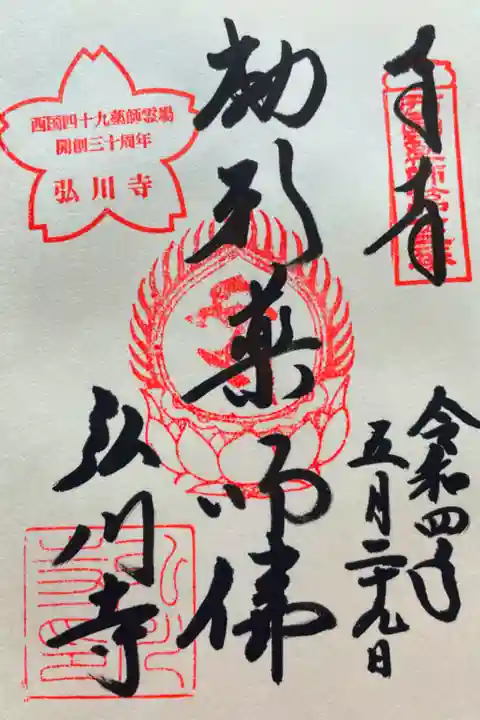 奉拝
令和四年
五月二十九日
勅形薬師佛
弘川寺
西国四十九薬師霊場
開創三十周年
弘川寺